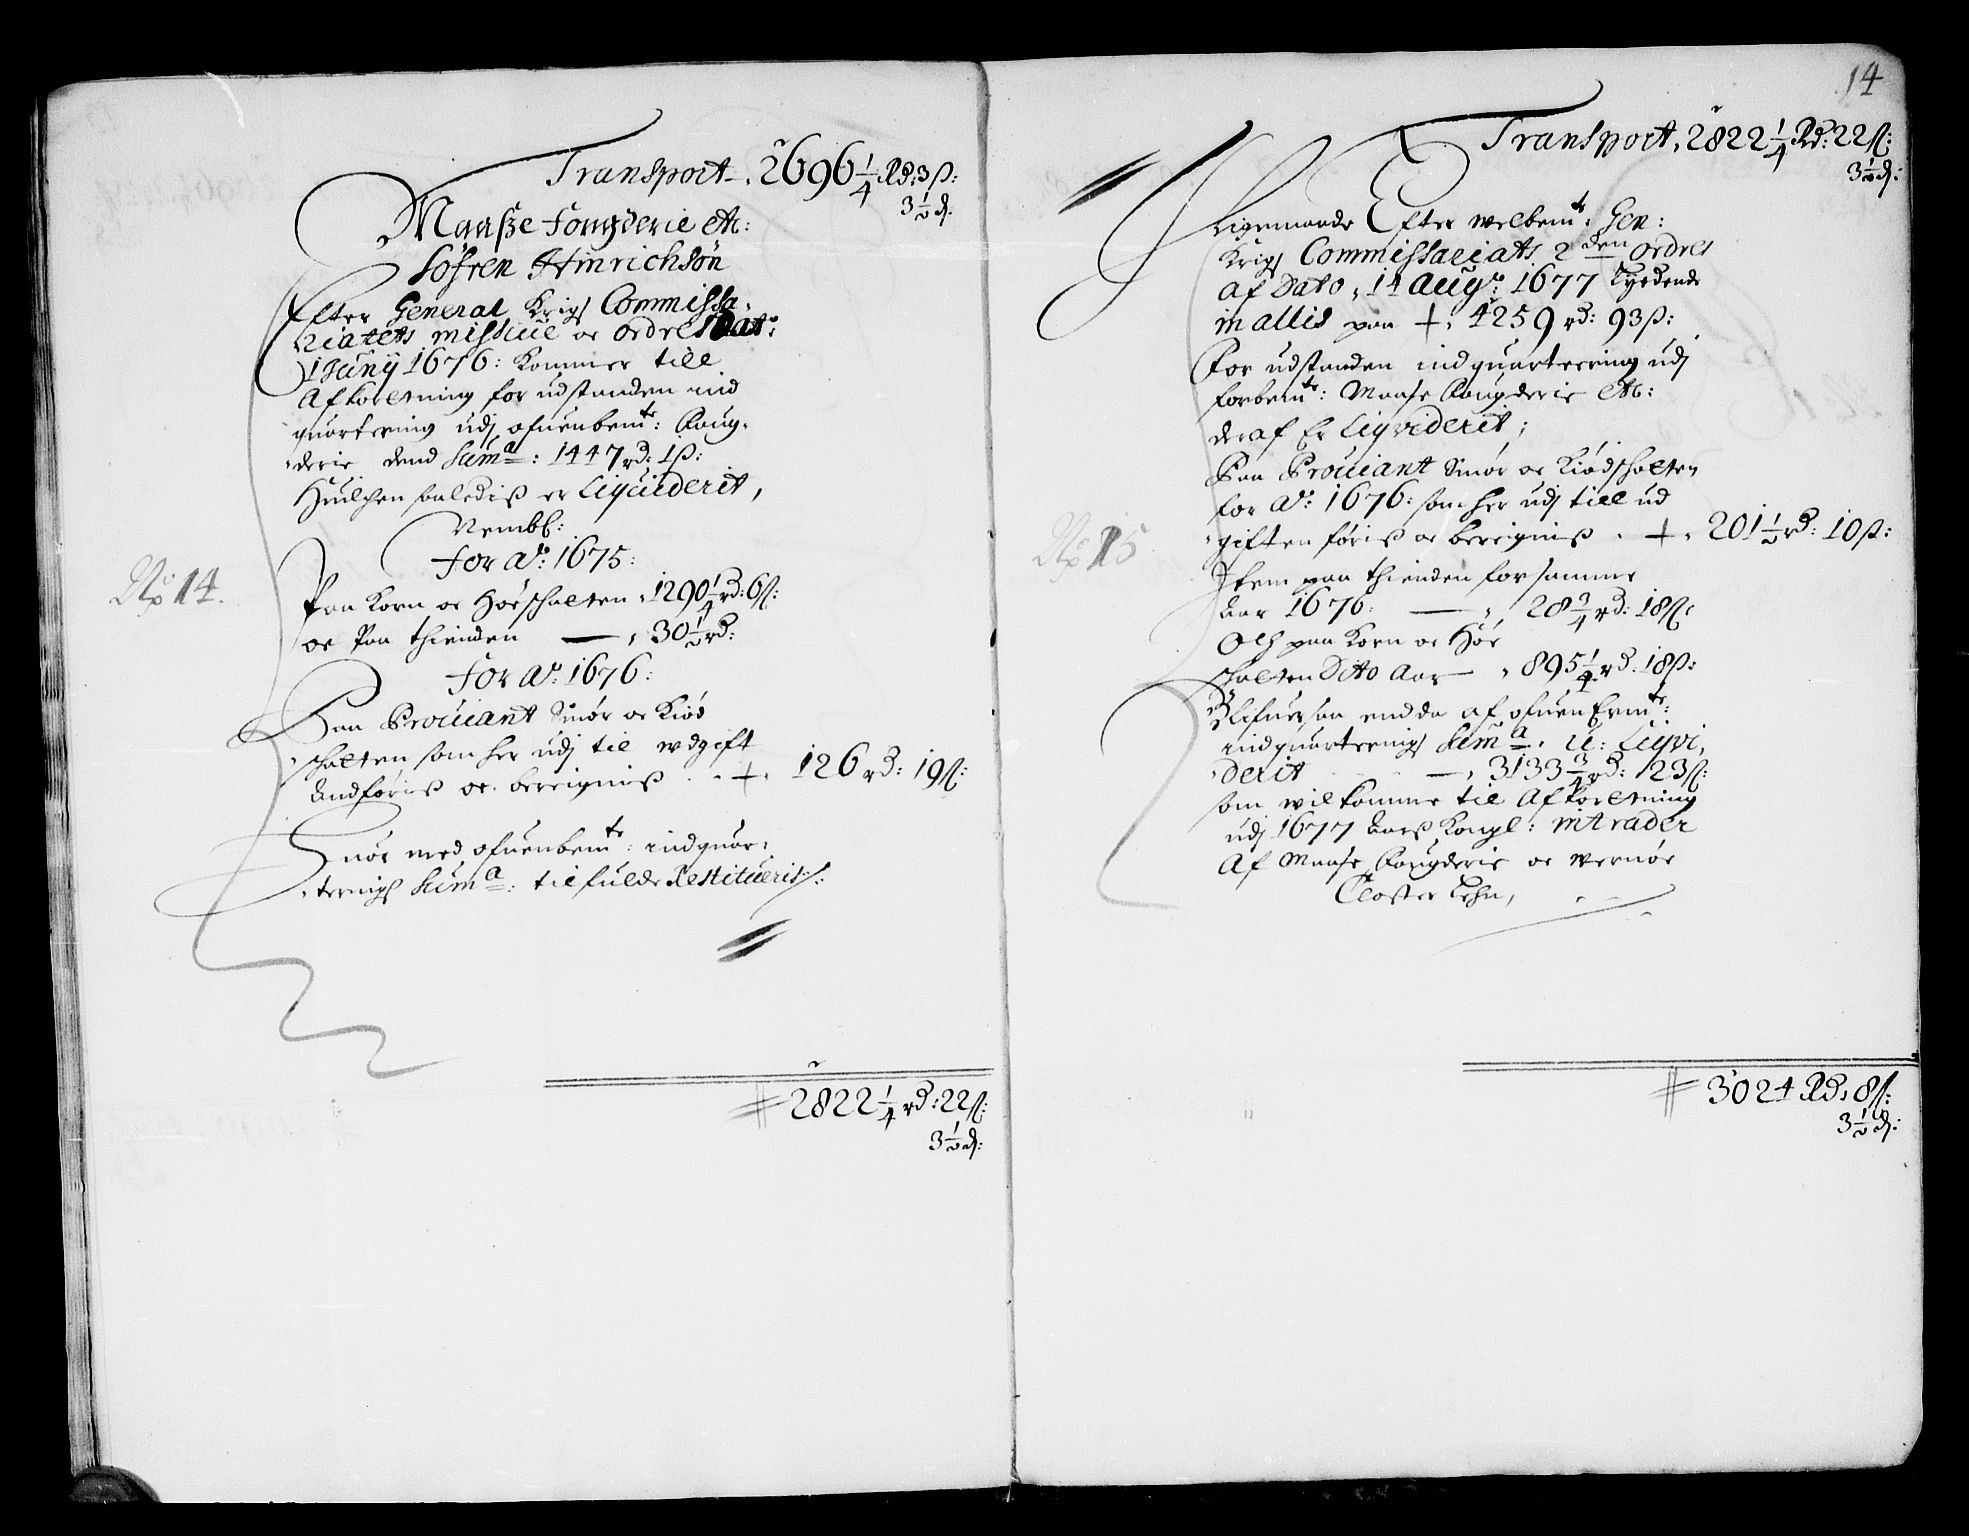 Transport, 2696 1/4 Rd: 3 ß:
3 1/2 d.
Maasße Fougderie etc:
Söfren Hinrichsön
Efter General Krigs Commissa-
riatets missiue oc ordre Dat:
1 Juny 1676: kommer till
Afkortning for udstanden ind
quartering udj ofuenbemte: Foug-
derie dend Suma: 1447 rd: 1 ß:
Huilchen saaledis er liquiderit,
Nembl:
For Ao: 1675:
Paa Korn oc Höeschatten, 1290 1/4 rd: 6 ß:
oc Paa thienden — , 30 1/2 rd:
For Ao: 1676:
No 14.
Paa Prouiant Smör oc Kiöd
schatten som her udj til wdgift
andföris oc beregnis . - + , 126 rd: 19 ß:
Naar med ofuenbemte: indquar-
terings Suma: til fulde Restitueris
2822 1/4 rd: 22 ß:
3 1/2 d:
14
Transport, 2822 1/4 Rd: 22 ß:
3 1/2 d:
Ligemaade Efter welbemte: Gen:
Krigs Commissariats 2den ordres
Af Dato, 14 Augs: 1677 Lydende
in alles paa +, 4259 rd: 93 ß:
For udstanden indquartering udj
forbemte: Maase Fougderie etc:
deraf Er liqviderit;
Paa Prouiant Smör oc Kiödschatten
for Ao: 1676: som her udj till ud
giften föris oc beregnis . + , 201 1/2 rd: 10 ß:
No 15
Item paa thienden for samme
Aar 1676: — , 28 3/4 rd: 18 ß:
Och paa Korn oc Höe
schatten Dito Aar — , 895 1/4 rd. 18 ß:
Blifuer saa endda af ofuen Ermte:
indquarterings Suma. U: Liqvi-
derit — , 3133 3/4 rd: 23 ß:
som wil komme til Afkortning
udj 1677 Aars Kongl: intrader
Af Maase Fougderie oc Wernöe
Closter Lehn,
3024 Rd, 8 ß:
3 1/2 d: